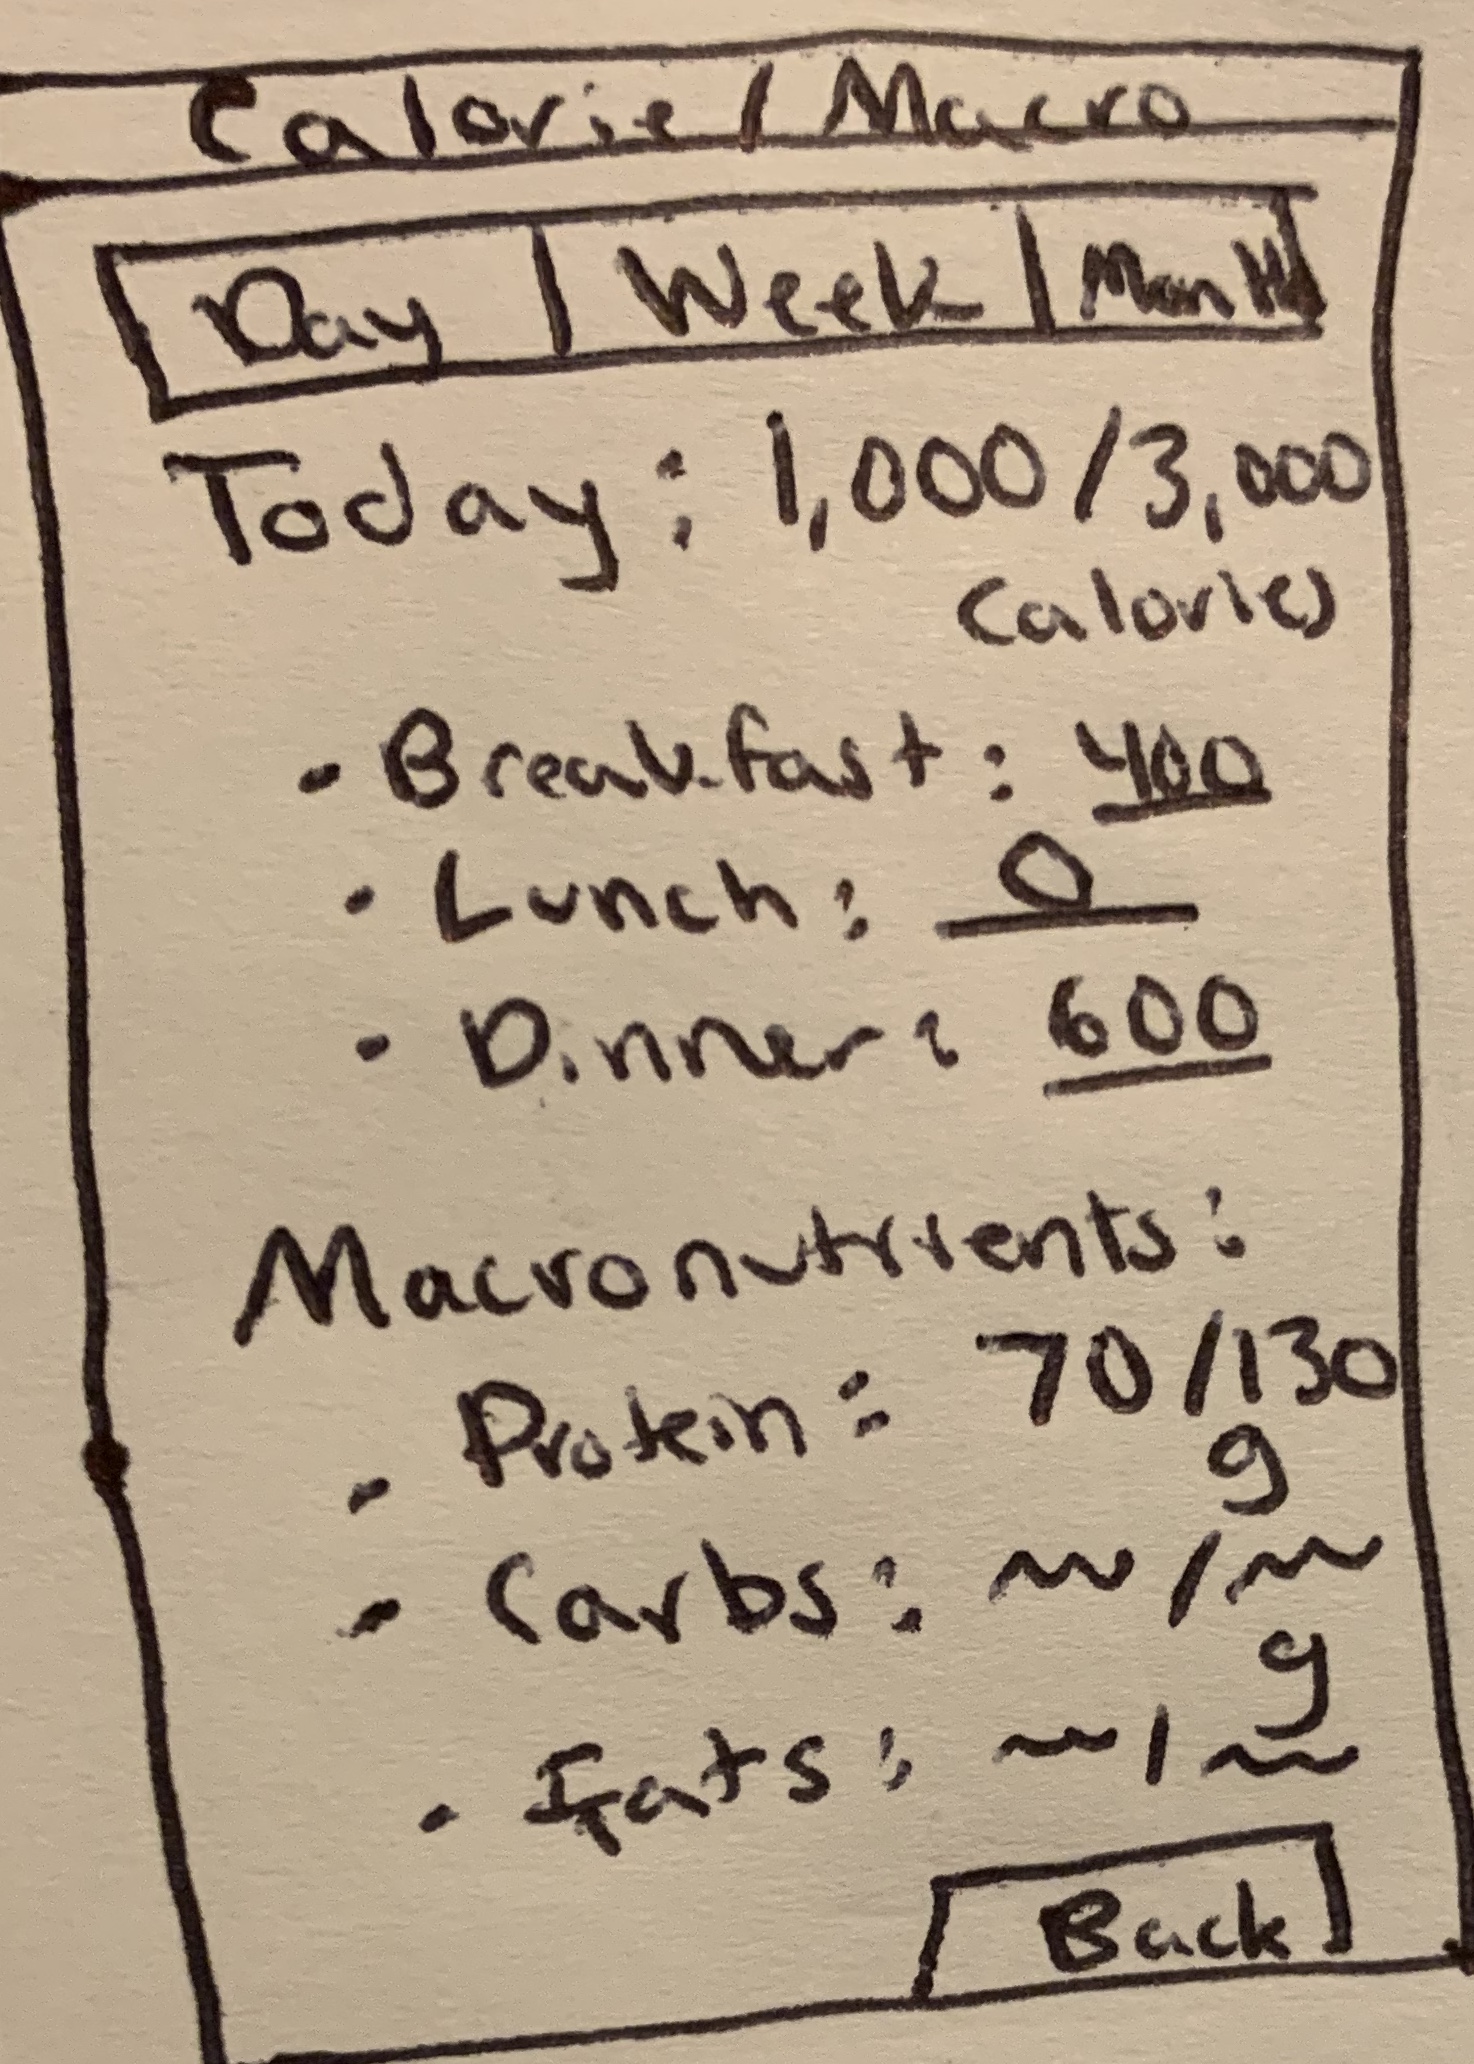 Calorie / Macro
Day | Week | Month
Today: 1,000 / 3,000
Calories
• Breakfast: 400
• Lunch: 0
• Dinner: 600
Macronutrients:
• Protein: 70/130
g
• Carbs: ~ / ~
g
• Fats: ~ / ~
Back